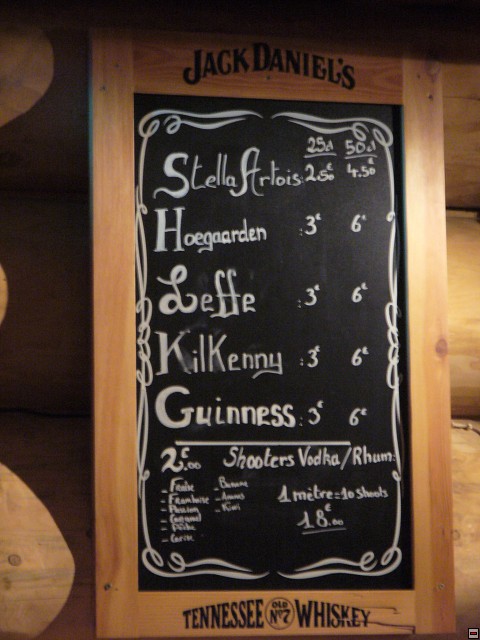 JACK DANIEL'S
25cl 50cl
Stella Artois: 2.50€ 4.50€
Hoegaarden : 3€ 6€
Leffe : 3€ 6€
KilKenny : 3€ 6€
Guinness : 3€ 6€
2€.00 Shooters Vodka/Rhum:
- Fraise - Banane
- Framboise - Ananas
- Passion - Kiwi
- Caramel
- Pêche
- Cerise
1 mètre = 10 shoots
18€.00
TENNESSEE OLD No 7 WHISKEY